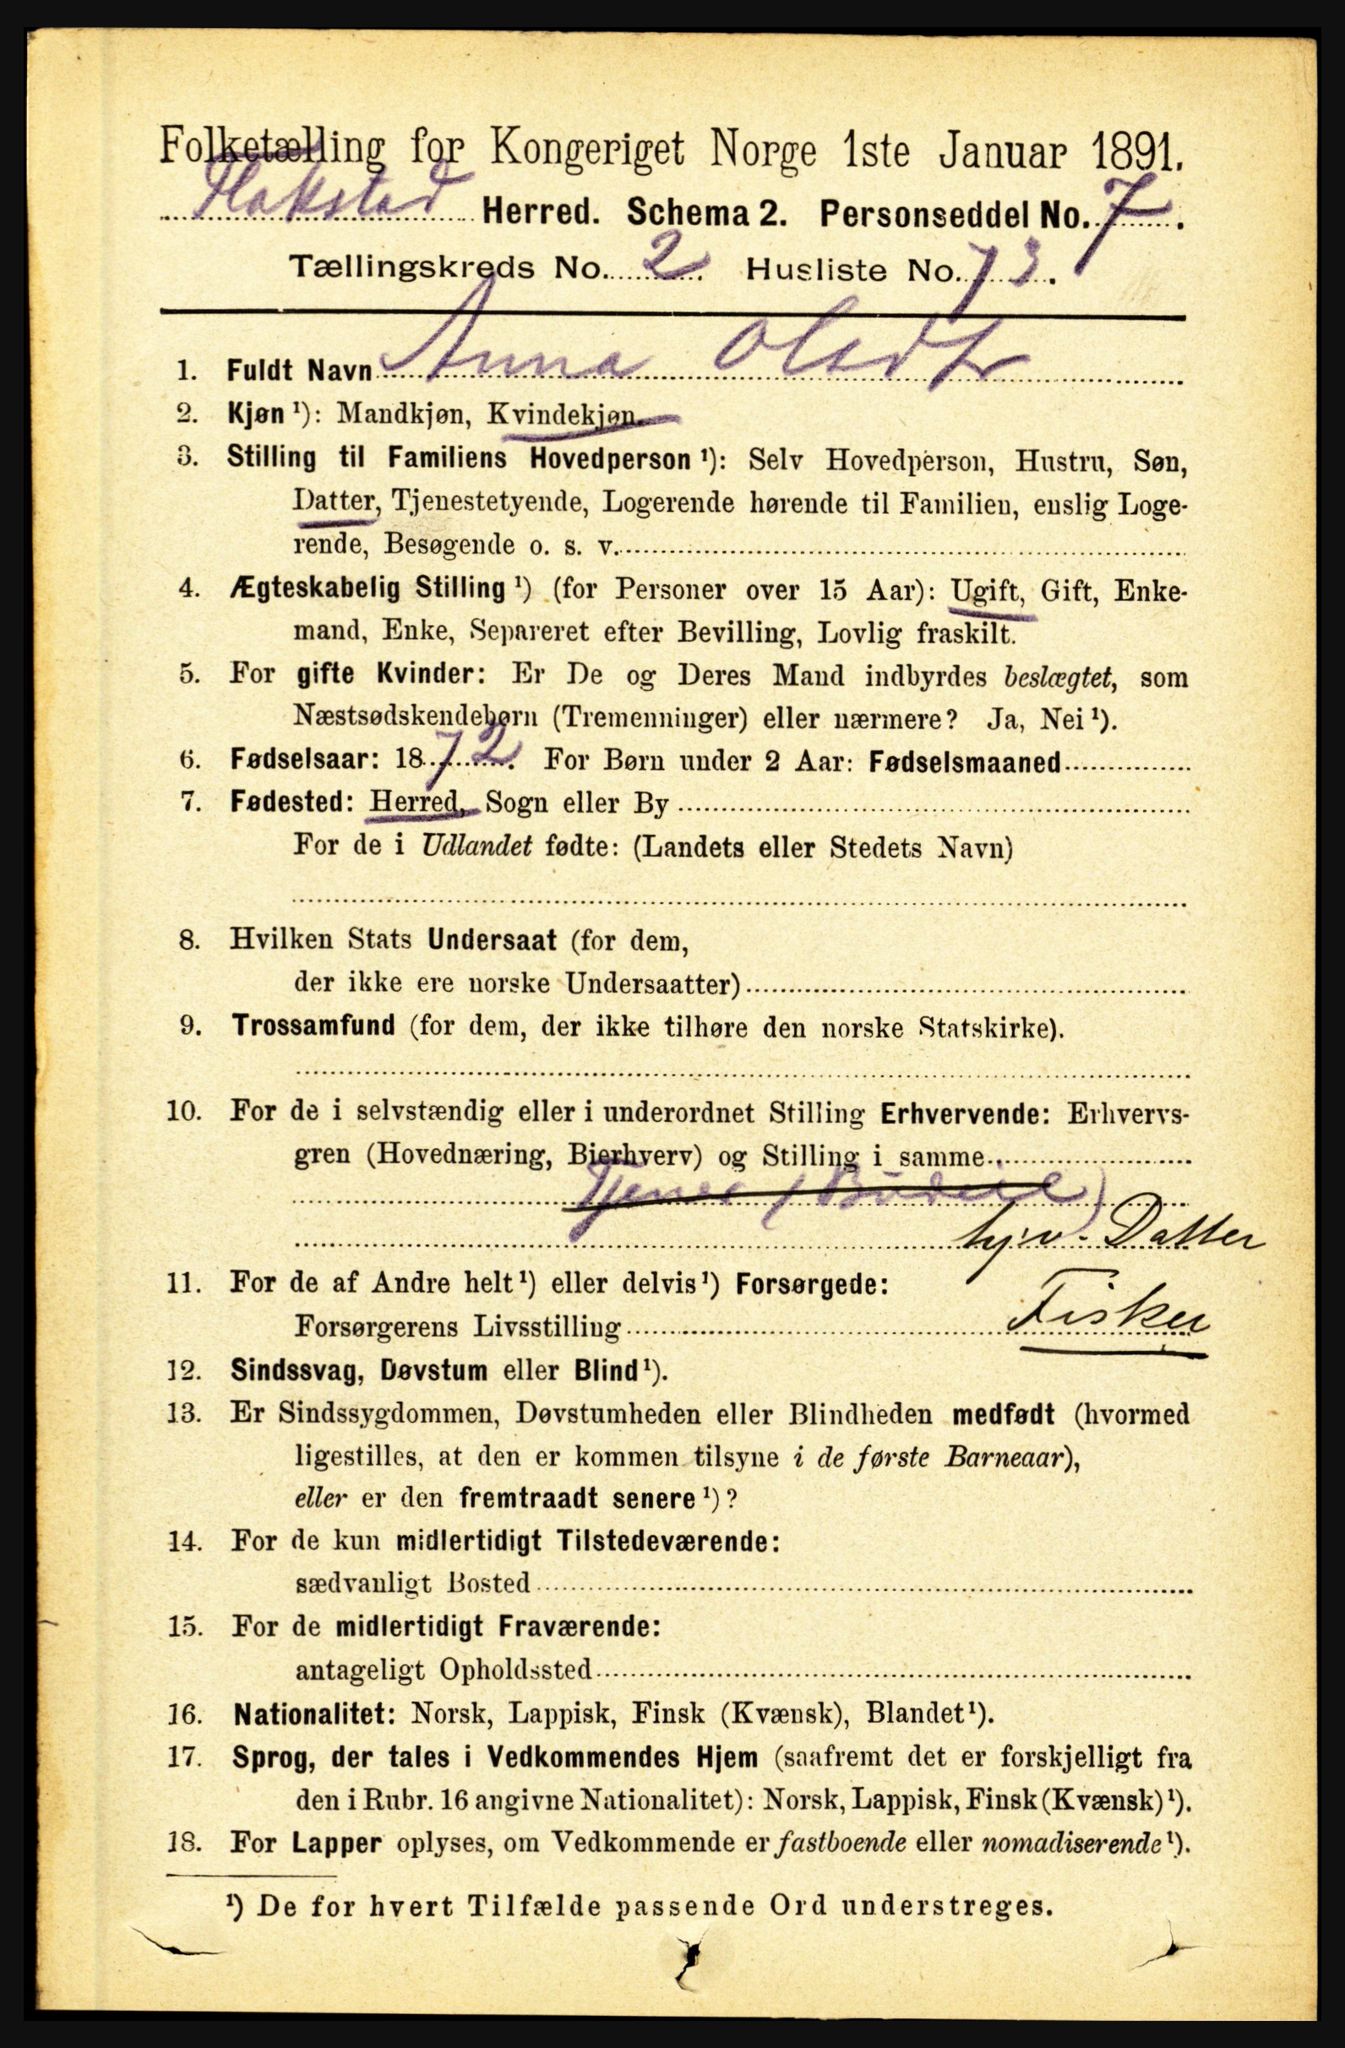 Folketælling for Kongeriget Norge 1ste Januar 1891.
Flakstad Herred. Schema 2. Personseddel No. 7.
Tællingskreds No. 2. Husliste No. 73.
1. Fuldt Navn Anna Olsdtr
2. Kjøn ¹): Mandkjøn, Kvindekjøn.
3. Stilling til Familiens Hovedperson ¹): Selv Hovedperson, Hustru, Søn,
Datter, Tjenestetyende, Logerende hørende til Familien, enslig Loge-
rende, Besøgende o. s. v.
4. Ægteskabelig Stilling ¹) (for Personer over 15 Aar): Ugift, Gift, Enke-
mand, Enke, Separeret efter Bevilling, Lovlig fraskilt.
5. For gifte Kvinder: Er De og Deres Mand indbyrdes beslægtet, som
Næstsødskendebørn (Tremenninger) eller nærmere? Ja, Nei ¹).
6. Fødselsaar: 1872. For Børn under 2 Aar: Fødselsmaaned
7. Fødested: Herred, Sogn eller By
For de i Udlandet fødte: (Landets eller Stedets Navn)
8. Hvilken Stats Undersaat (for dem,
der ikke ere norske Undersaatter)
9. Trossamfund (for dem, der ikke tilhøre den norske Statskirke).
10. For de i selvstændig eller i underordnet Stilling Erhvervende: Erhvervs-
gren (Hovednæring, Bierhverv) og Stilling i samme
Tjener (Budeie)
hjv. Datter
11. For de af Andre helt ¹) eller delvis ¹) Forsørgede:
Forsørgerens Livsstilling Fisker
12. Sindssvag, Døvstum eller Blind ¹).
13. Er Sindssygdommen, Døvstumheden eller Blindheden medfødt (hvormed
ligestilles, at den er kommen tilsyne i de første Barneaar),
eller er den fremtraadt senere ¹)?
14. For de kun midlertidigt Tilstedeværende:
sædvanligt Bosted
15. For de midlertidigt Fraværende:
antageligt Opholdssted
16. Nationalitet: Norsk, Lappisk, Finsk (Kvænsk), Blandet ¹).
17. Sprog, der tales i Vedkommendes Hjem (saafremt det er forskjelligt fra
den i Rubr. 16 angivne Nationalitet): Norsk, Lappisk, Finsk (Kvænsk) ¹).
18. For Lapper oplyses, om Vedkommende er fastboende eller nomadiserende ¹).
¹) De for hvert Tilfælde passende Ord understreges.